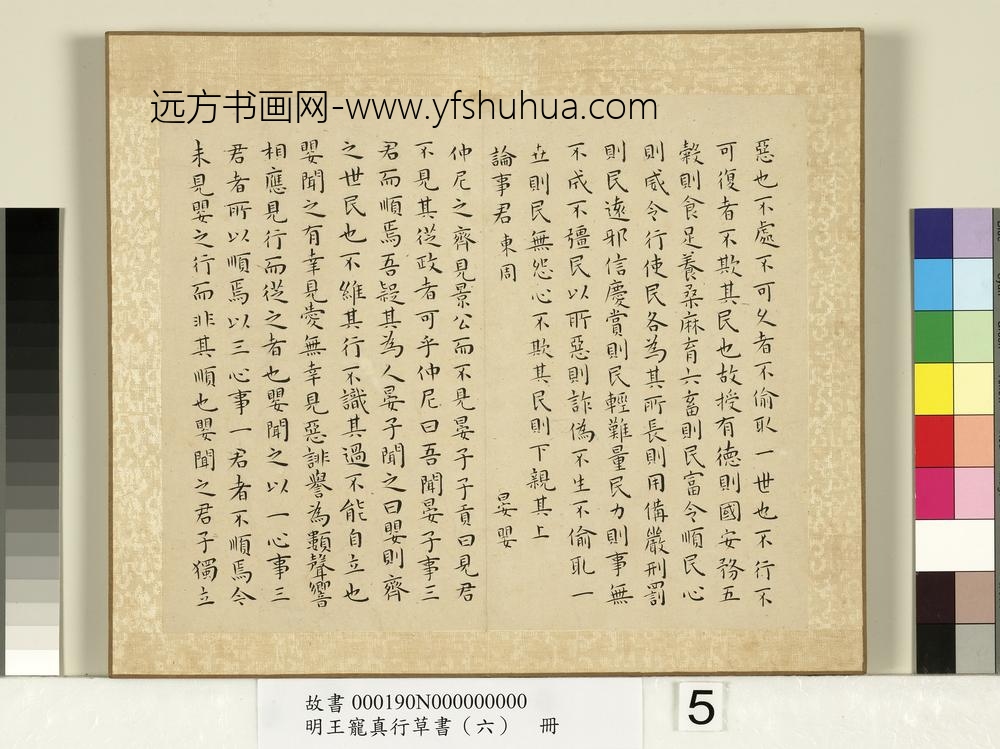 远方书画网-www.yfshuhua.com
惡也不處不可久者不偷取一世也不行不
可復者不欺其民也故授有德則國安務五
穀則食足養桑麻育六畜則民富令順民心
則威令行使民各為其所長則用備嚴刑罰
則民遠邪信慶賞則民輕難量民力則事無
不成不彊民以所惡則詐偽不生不偷取一
世則民無怨心不欺其民則下親其上
論事君 東周 晏嬰
仲尼之齊見景公而不見晏子子貢曰見君
不見其從政者可乎仲尼曰吾聞晏子事三
君而順焉吾疑其為人晏子聞之曰嬰則齊
之世民也不維其行不識其過不能自立也
嬰聞之有幸見愛無幸見惡誹譽為類聲響
相應見行而從之者也嬰聞之以一心事三
君者所以順焉以三心事一君者不順焉今
未見嬰之行而非其順也嬰聞之君子獨立
故書 000190N000000000
明王寵真行草書（六） 冊
5